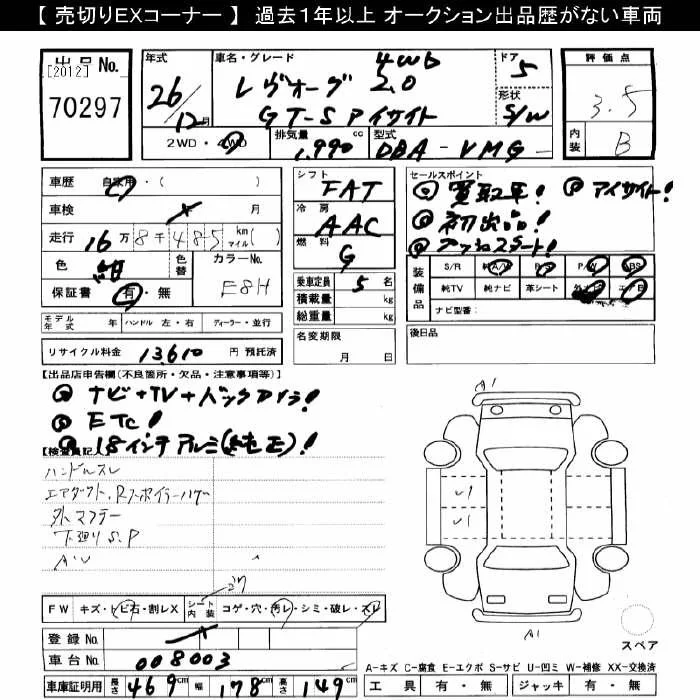 【 売切りEXコーナー 】 過去1年以上 オークション出品歴がない車両
出品 No.
[2012]
70297
年式
26年
12月
車名・グレード
4WD
レヴォーグ 2.0
GT-S アイサイト
ドア
5
形状
S/W
評価点
3.5
内装
B
2WD・4WD
排気量
1,990 cc
型式
DBA - VMG -
車歴 自家用・( )
車検 月
走行 16万8千485 km マイル( )
色 紺 色替 カラーNo. E8H
保証書 有・無
シフト
FAT
冷房
AAC
燃料
G
乗車定員 5 名
積載量 kg
総重量 kg
セールスポイント
買取車! アイサイト!
初出品!
プッシュスタート!
装備品
S/R 純A/W P/S P/W ABS
純TV 純ナビ 革シート 外ナビ エアB
ナビ型番:
モデル年式 年 ハンドル 左・右 ディーラー・並行
名変期限
月 日
後日品
リサイクル料金 13,610 円 預託済
【出品店申告欄(不良箇所・欠品・注意事項等)】
ナビ+TV+バックカメラ!
ETC!
18インチアルミ(純正)!
【検査員記入
ハンドルスレ
エアダクト、Rスポイラーハゲ
外マフラー
下廻りS.P
A・U
FW キズ・トビ石・割レX シート内装 コゲ・穴・汚レ・シミ・破レ・スレ
登録 No.
車台 No. 008003
車庫証明用 長さ 469 cm 幅 178 cm 高さ 149 cm
A1
A1
スペア
A-キズ C-腐食 E-エクボ S-サビ U-凹ミ W-補修 XX-交換済
工具 有・無 ジャッキ 有・無